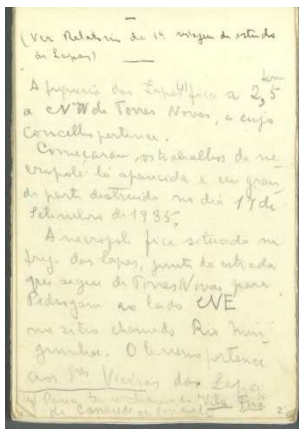 (Ver Relatorio da 1ª viagem de estudo
ás Lapas)
A freguesia das Lapas¹⁾ fica a 2,5 km
a NW de Torres Novas, a cujo
concelho pertence.
Começaram os trabalhos da ne-
cropole lá aparecida e em gran-
de parte destruida no dia 17 de
Setembro de 1935,
A necropole fica situada na
freg. das Lapas, junto da estrada
que segue de Torres Novas para
Pedrogam ao lado NE
no sitio chamado Rio
O terreno pertence
aos Vieiras das Lapas
1) Parece ter se chamado Vila Fria
de
2